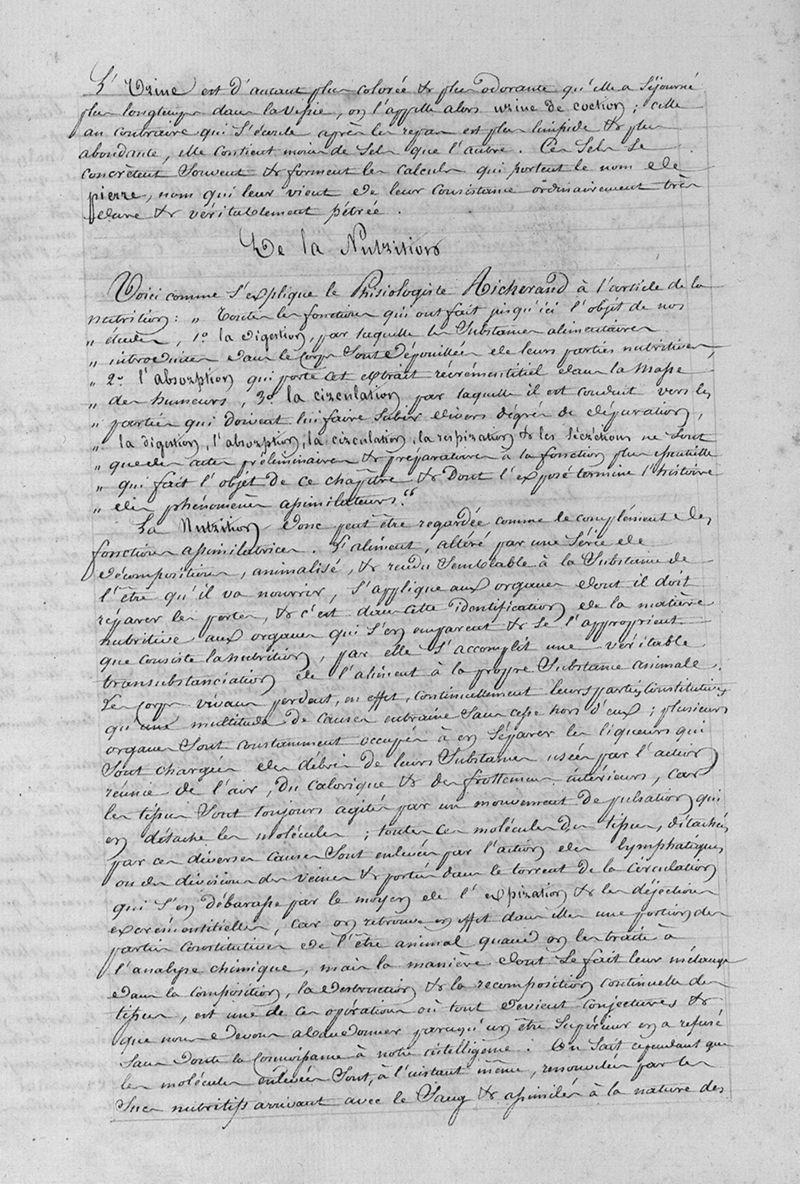 L'Urine est d'autant plus colorée & plus odorante qu'elle a séjourné
plus longtemps dans la vessie, on l'appelle alors urine de coction ; celle
au contraire qui s'écoule après les repas est plus limpide & plus
abondante, elle contient moins de sels que l'autre. Ces sels se
concrètent souvent & forment les calculs qui portent le nom de
pierre, nom qui leur vient de leur consistance ordinairement très
dure & véritablement pétrée.
De la Nutrition
Voici comme s'explique le Phisiologiste Richerand à l'article de la
nutrition : „ Toutes les fonctions qui ont fait jusqu'ici l'objet de nos
„ études, 1° la digestion, par laquelle les substances alimentaires
„ introduites dans le corps sont dépouillées de leurs parties nutritives,
„ 2° l'absorption qui porte cet extrait récrémentitiel dans la masse
„ des humeurs, 3° la circulation par laquelle il est conduit vers les
„ parties qui doivent lui faire subir divers degrés de dépuration,
„ la digestion, l'absorption, la circulation, la respiration & les sécrétions ne sont
„ que des actes préliminaires & préparatoires à la fonction plus essentielle
„ qui fait l'objet de ce chapitre & dont l'exposé termine l'histoire
„ des phénomènes assimilateurs. “
La Nutrition donc peut être regardée comme le complément des
fonctions assimilatrices. L'aliment, altéré par une série de
décompositions, animalisé, & rendu semblable à la substance de
l'être qu'il va nourrir, s'applique aux organes dont il doit
réparer les pertes, & c'est dans cette identification de la matière
nutritive aux organes qui s'en emparent & se l'approprient
que consiste la nutrition, par elle s'accomplit une véritable
transubstanciation de l'aliment à la propre substance animale.
Les corps vivans perdent, en effet, continuellement leurs parties constitutives
qu'une multitude de causes entraine sans cesse hors d'eux ; plusieurs
organes sont constamment occupés à en séparer les liqueurs qui
sont chargées des débris de leurs substances usées par l'action
réunie de l'air, du calorique & des frottemens intérieurs, car
les tissus sont toujours agités par un mouvement de pulsation qui
en détache les molécules ; toutes ces molécules des tissus, détachées
par ces diverses causes sont enlevées par l'action des lymphatiques
ou des divisions des veines & portées dans le torrent de la circulation
qui s'en débarasse par le moyen de l'expiration & les déjections
excrémentitielles, car on retrouve en effet dans elles une portion des
parties constitutives de l'être animal quand on les traite à
l'analyse chimique, mais la manière dont se fait leur mélange
dans la composition, la destruction & la recomposition continuelle des
tissus, est une de ces opérations où tout devient conjectures &
que nous devons abandonner parcequ'un être supérieur en a refusé
sans doute la connaissance à notre intelligence. On sait cependant que
les molécules enlevées sont, à l'instant même, renouvelées par les
sucs nutritifs arrivant avec le sang & assimilés à la nature des